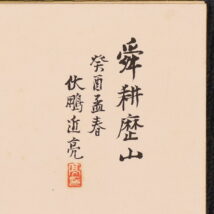 舜耕歷山
癸酉孟春
伏鵬道亮